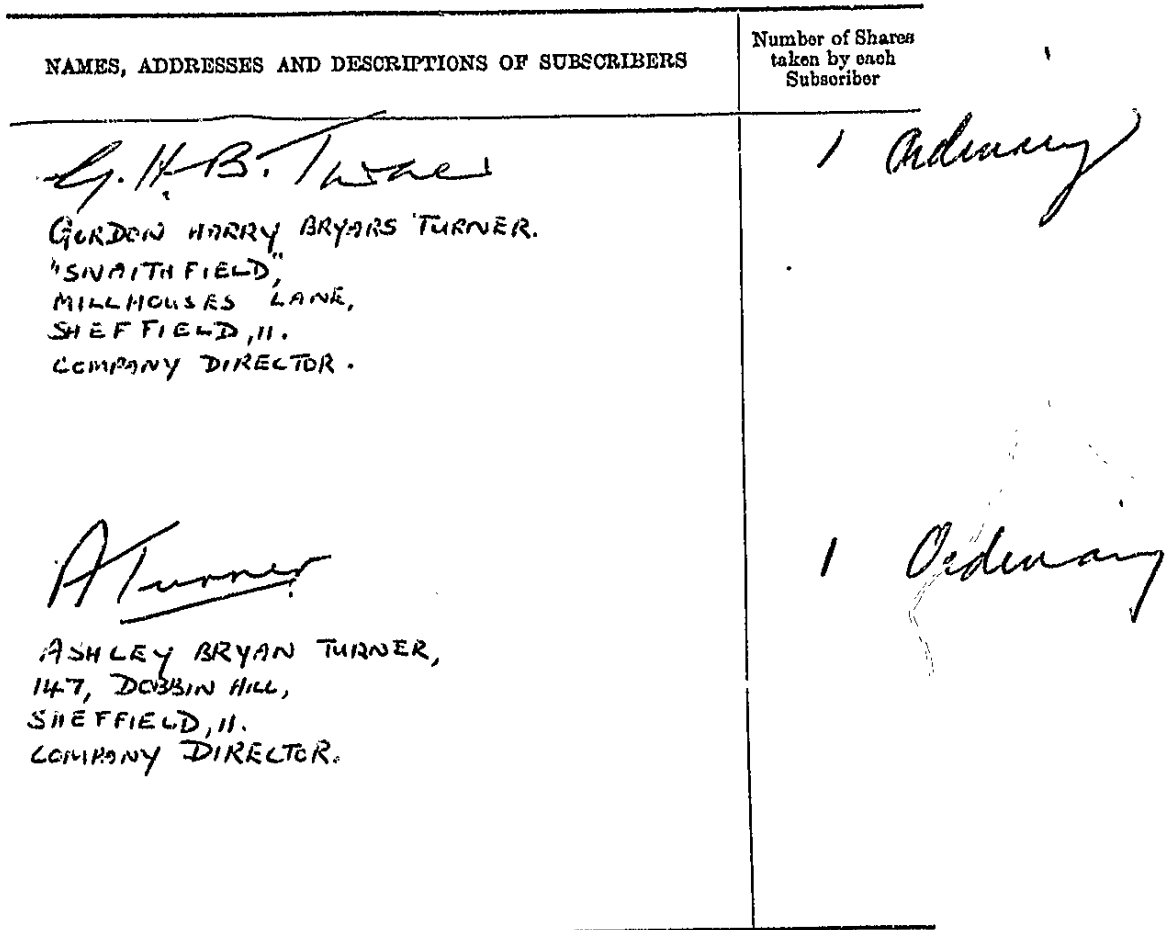 NAMES, ADDRESSES AND DESCRIPTIONS OF SUBSCRIBERS
Number of Shares
taken by each
Subscriber
G. H. B. Turner
1 Ordinary
GORDON HARRY BRYARS TURNER.
"SNAITHFIELD,"
MILLHOUSES LANE,
SHEFFIELD, 11.
COMPANY DIRECTOR.
A Turner
1 Ordinary
ASHLEY BRYAN TURNER,
147, DOBBIN HILL,
SHEFFIELD, 11.
COMPANY DIRECTOR.